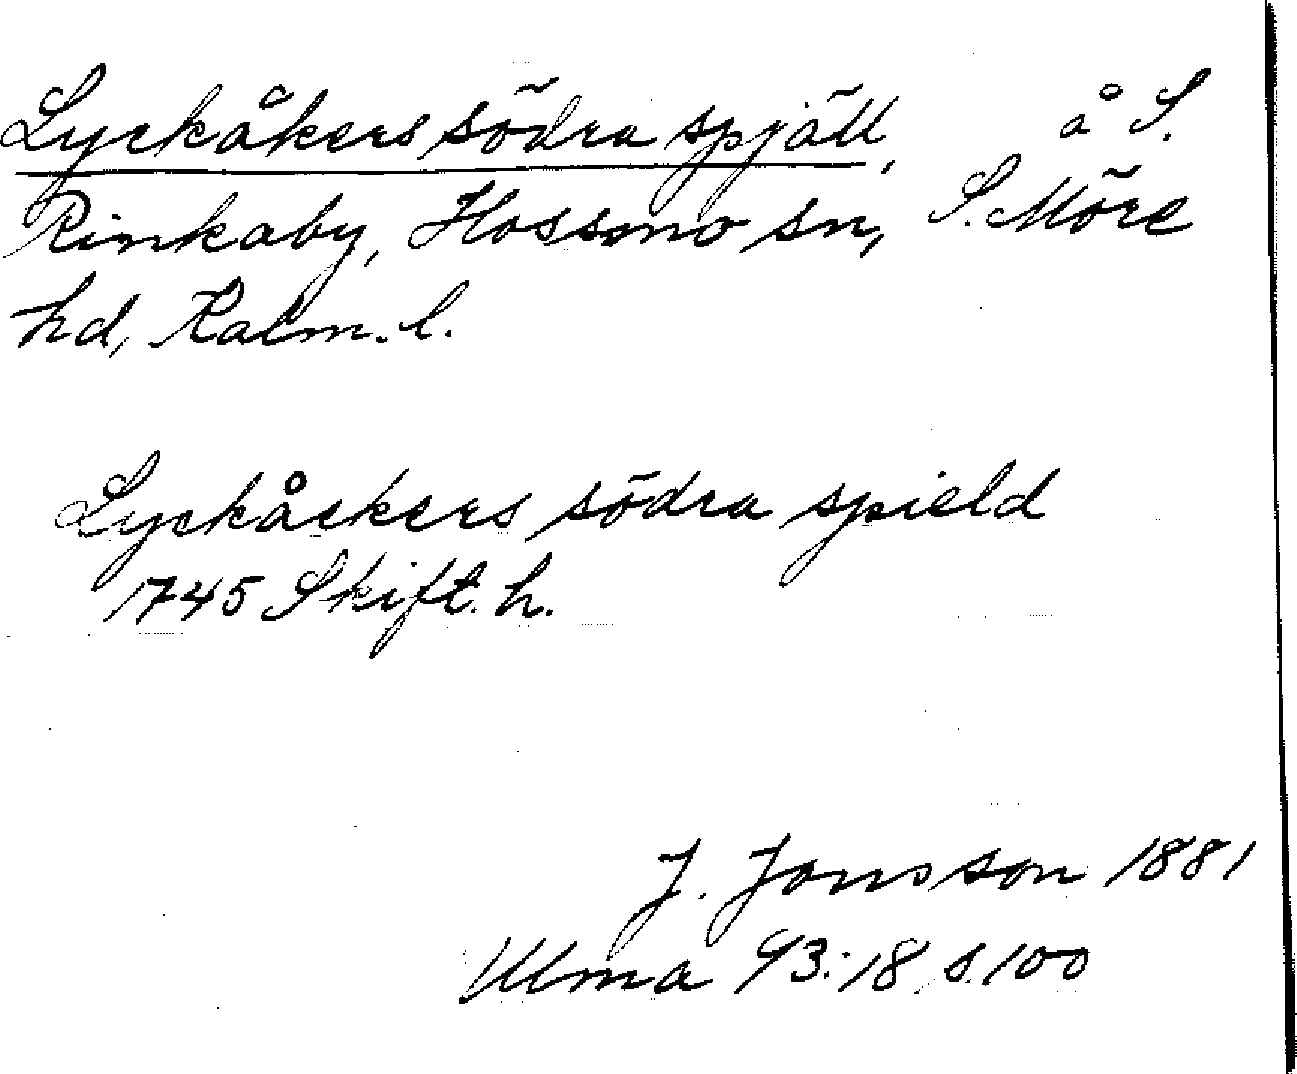 Lyckåkers södra spjäll, å S.
Rinkaby, Hossmo sn, S. Möre
hd, Kalm. l.
Lyckåckers södra spield
1745 Skift. h.
J. Jonsson 1881
Ulma 93:18 s. 100